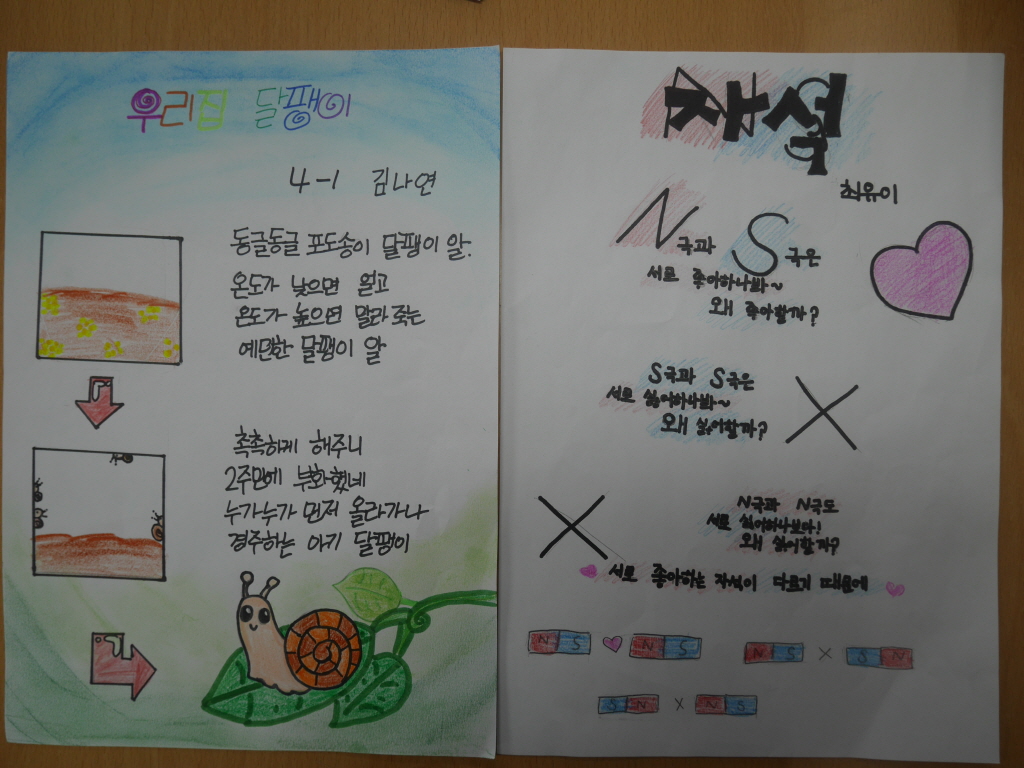 우리집 달팽이
4-1 김나연
동글동글 포도송이 달팽이 알.
온도가 낮으면 얼고
온도가 높으면 말라 죽는
예민한 달팽이 알
촉촉하게 해주니
2주만에 부화했네
누가누가 먼저 올라가나
경주하는 아기 달팽이
최유이
N극과 S극은
서로 좋아하나봐~
왜 좋아할까?
S극과 S극은
서로 싫어하나봐~
왜 싫어할까?
N극과 N극도
서로 싫어하나보다!
왜 싫어할까?
서로 좋아하는 자석이 다르기 때문에
N S N S N S S N
S N N S